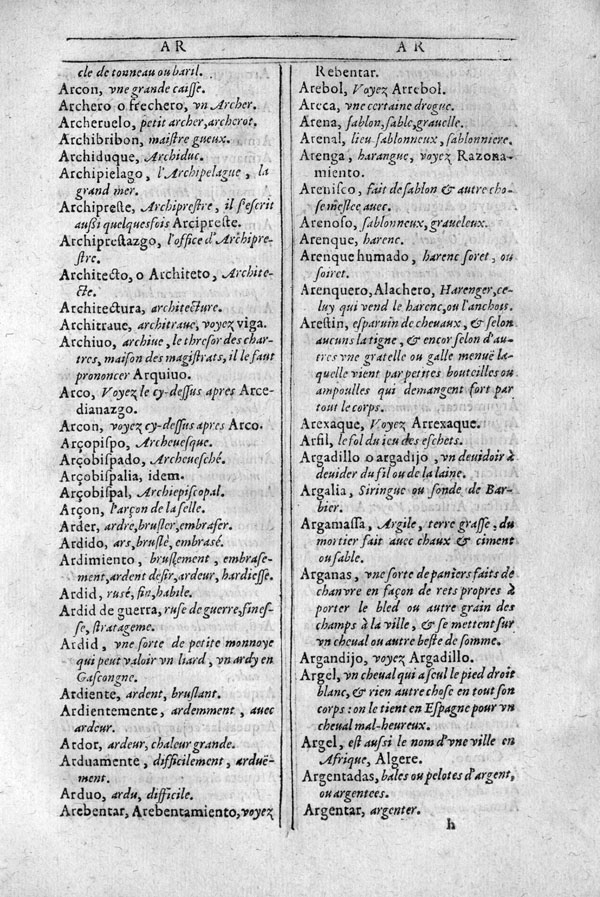 AR
cle de tonneau ou baril.
Arcon, vne grande caisse.
Archero o frechero, vn Archer.
Archeruelo, petit archer, archerot.
Archibribon, maistre gueux.
Archiduque, Archiduc.
Archipielago, l'Archipelague, la
grand mer.
Archipreste, Archiprestre, il s'escrit
aussi quelquesfois Arcipreste.
Archiprestazgo, l'office d'Archipre-
stre.
Architecto, o Architeto, Archite-
cte.
Architectura, architecture.
Architraue, architraue, voyez viga.
Archiuo, archiue, le thresor des char-
tres, maison des magistrats, il le faut
prononcer Arquiuo.
Arco, Voyez le cy-dessus apres Arce-
dianazgo.
Arcon, voyez cy-dessus apres Arco.
Arçopispo, Archeuesque.
Arçobispado, Archeuesché.
Arçobispalia, idem.
Arçobispal, Archiepiscopal.
Arçon, l'arçon de la selle.
Arder, ardre, brusler, embraser.
Ardido, ars, bruslé, embrasé.
Ardimiento, bruslement, embrase-
ment, ardent desir, ardeur, hardiesse.
Ardid, rusé, fin, habile.
Ardid de guerra, ruse de guerre, fines-
se, stratageme.
Ardid, vne sorte de petite monnoye
qui peut valoir vn liard, vn ardy en
Gascongne.
Ardiente, ardent, bruslant.
Ardientemente, ardemment, auec
ardeur.
Ardor, ardeur, chaleur grande.
Arduamente, difficilement, arduë-
ment.
Arduo, ardu, difficile.
Arebentar, Arebentamiento, voyez
AR
Rebentar.
Arebol, Voyez Arrebol.
Areca, vne certaine drogue.
Arena, sablon, sable, grauelle.
Arenal, lieu sablonneux, sablonniere.
Arenga, harangue, voyez Razona-
miento.
Arenisco, fait de sablon & autre cho-
se meslee auec.
Arenoso, sablonneux, graueleux.
Arenque, harenc.
Arenque humado, harenc soret, ou
soiret.
Arenquero, Alachero, Harenger, ce-
luy qui vend le harenc, ou l'anchois.
Arestin, esparuin de cheuaux, & selon
aucuns la tigne, & encor selon d'au-
tres vne gratelle ou galle menuë la-
quelle vient par petites bouteilles ou
ampoulles qui demangent fort par
tout le corps.
Arexaque, Voyez Arrexaque.
Arfil, le sol du ieu des eschets.
Argadillo o argadijo, vn deuidoir à
deuider du fil ou de la laine.
Argalia, Siringue ou sonde de Bar-
bier.
Argamassa, Argile, terre grasse, du
mortier fait auec chaux & ciment
ou sable.
Arganas, vne sorte de paniers faits de
chanvre en façon de rets propres à
porter le bled ou autre grain des
champs à la ville, & se mettent sur
vn cheual ou autre beste de somme.
Argandijo, voyez Argadillo.
Argel, vn cheual qui a seul le pied droit
blanc, & rien autre chose en tout son
corps: on le tient en Espagne pour vn
cheual mal-heureux.
Argel, est aussi le nom d'vne ville en
Afrique, Algere.
Argentadas, bales ou pelotes d'argent,
ou argentees.
Argentar, argenter.
h